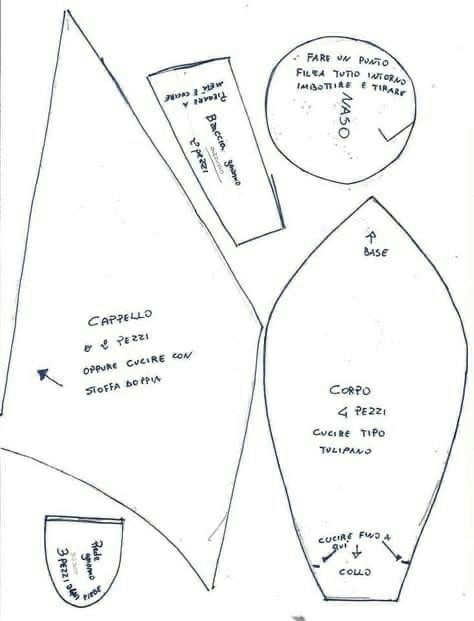 FARE UN PUNTO
FILZA TUTTO INTORNO
IMBOTTIRE E TIRARE
NASO
PIEGARE A
META E CUCIRE
Braccia gnomo
2 PEZZI
BASE
CAPPELLO
2 PEZZI
OPPURE CUCIRE CON
STOFFA DOPPIA
CORPO
4 PEZZI
CUCIRE TIPO
TULIPANO
CUCIRE FINO A
QUI
COLLO
Piede
gnomo
3 PEZZI
PIEDE